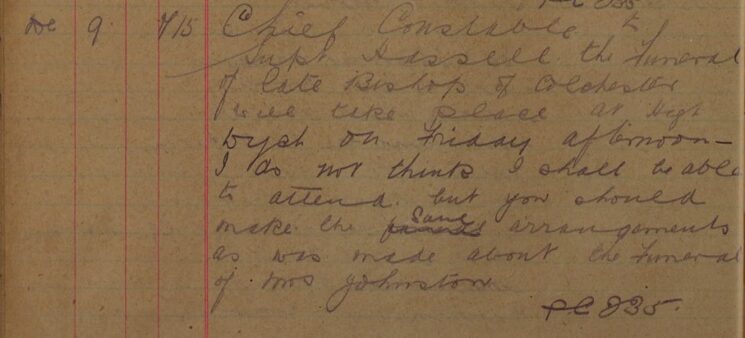 PC 235.
De 9 7/15 Chief Constable to
Supt Hassell the Funeral
of late Bishop of Colchester
will take place at High
wych on Friday afternoon —
I do not think I shall be able
to attend. but you should
make the Same arrangements
as was made about the Funeral
of Mrs Johnston
PC 235.